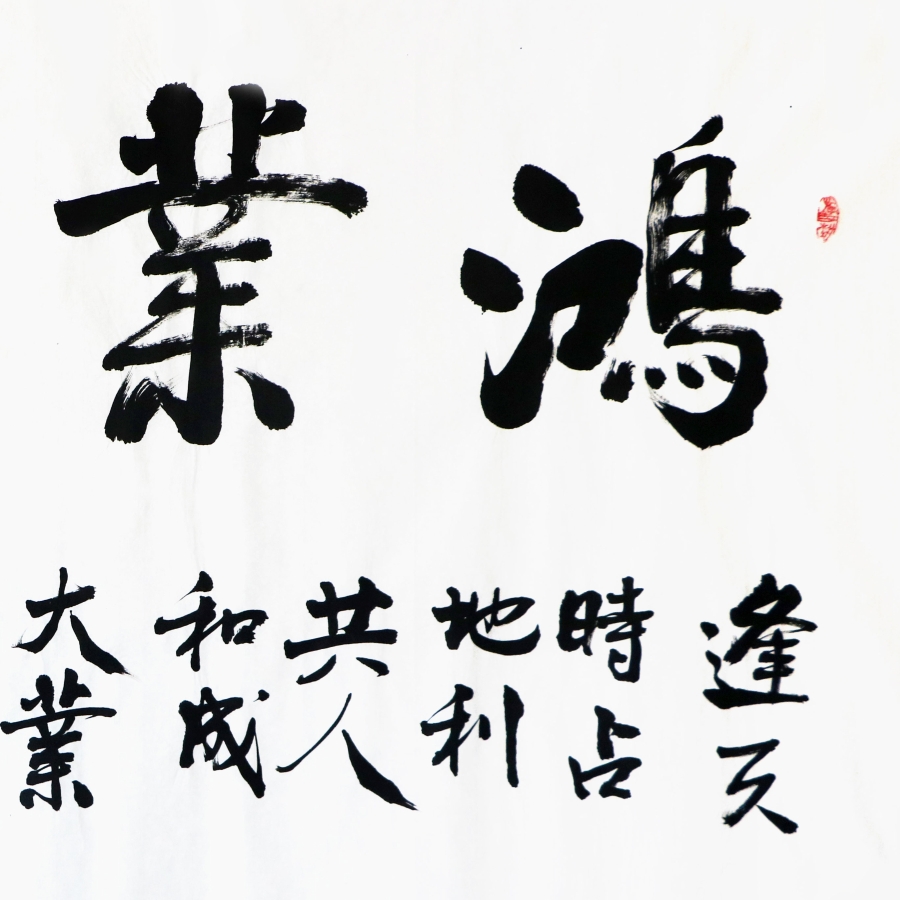 鴻業
逢天
時占
地利
共人
和成
大業